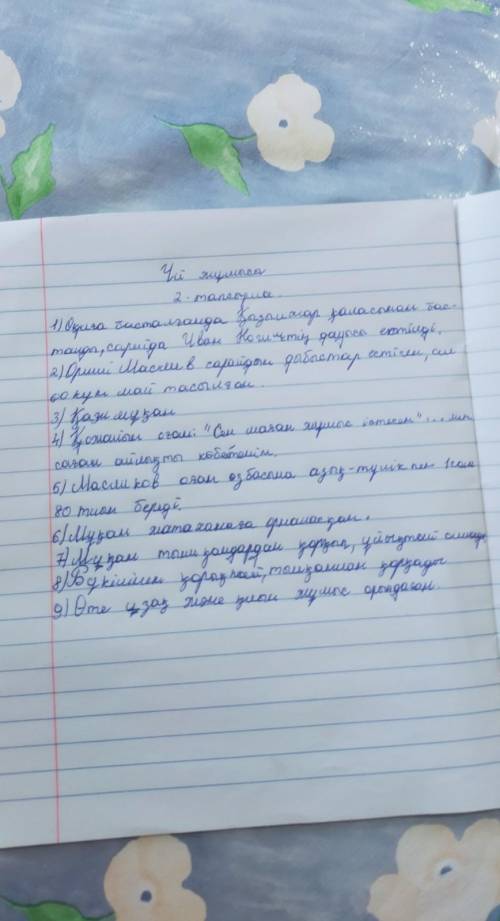 Үй жұмысы
2-тапсырма.
1) Оқиға басталғанда Қызылжар қаласынан бас-
талды, сарайда Иван
2) Орыны Маслков сарайдың дыбыстар естіген, ол
60 күн май тасылған.
3) Қажымұқан
4) Қожайын оған: "Сен маған жұмыс істесең" ... мен
саған айлықты көбейтемін.
5) Масликов оған өзбасына азық-түлікпен 1 сом
80 тиын берді.
6) Мұқан жатаханаға орналасқан.
7) Мұқан тышқандардан қорқып, ұйықтай алмады
8) қорықпай, тышқаннан қорқады
9) Өте ұзақ және қиын жұмыс орындаған.